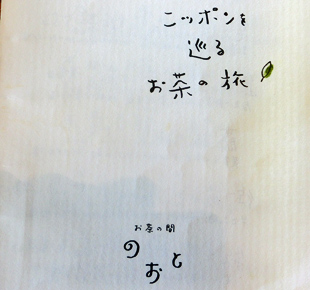 ニッポンを
巡る
お茶の旅
お茶の間
のおと